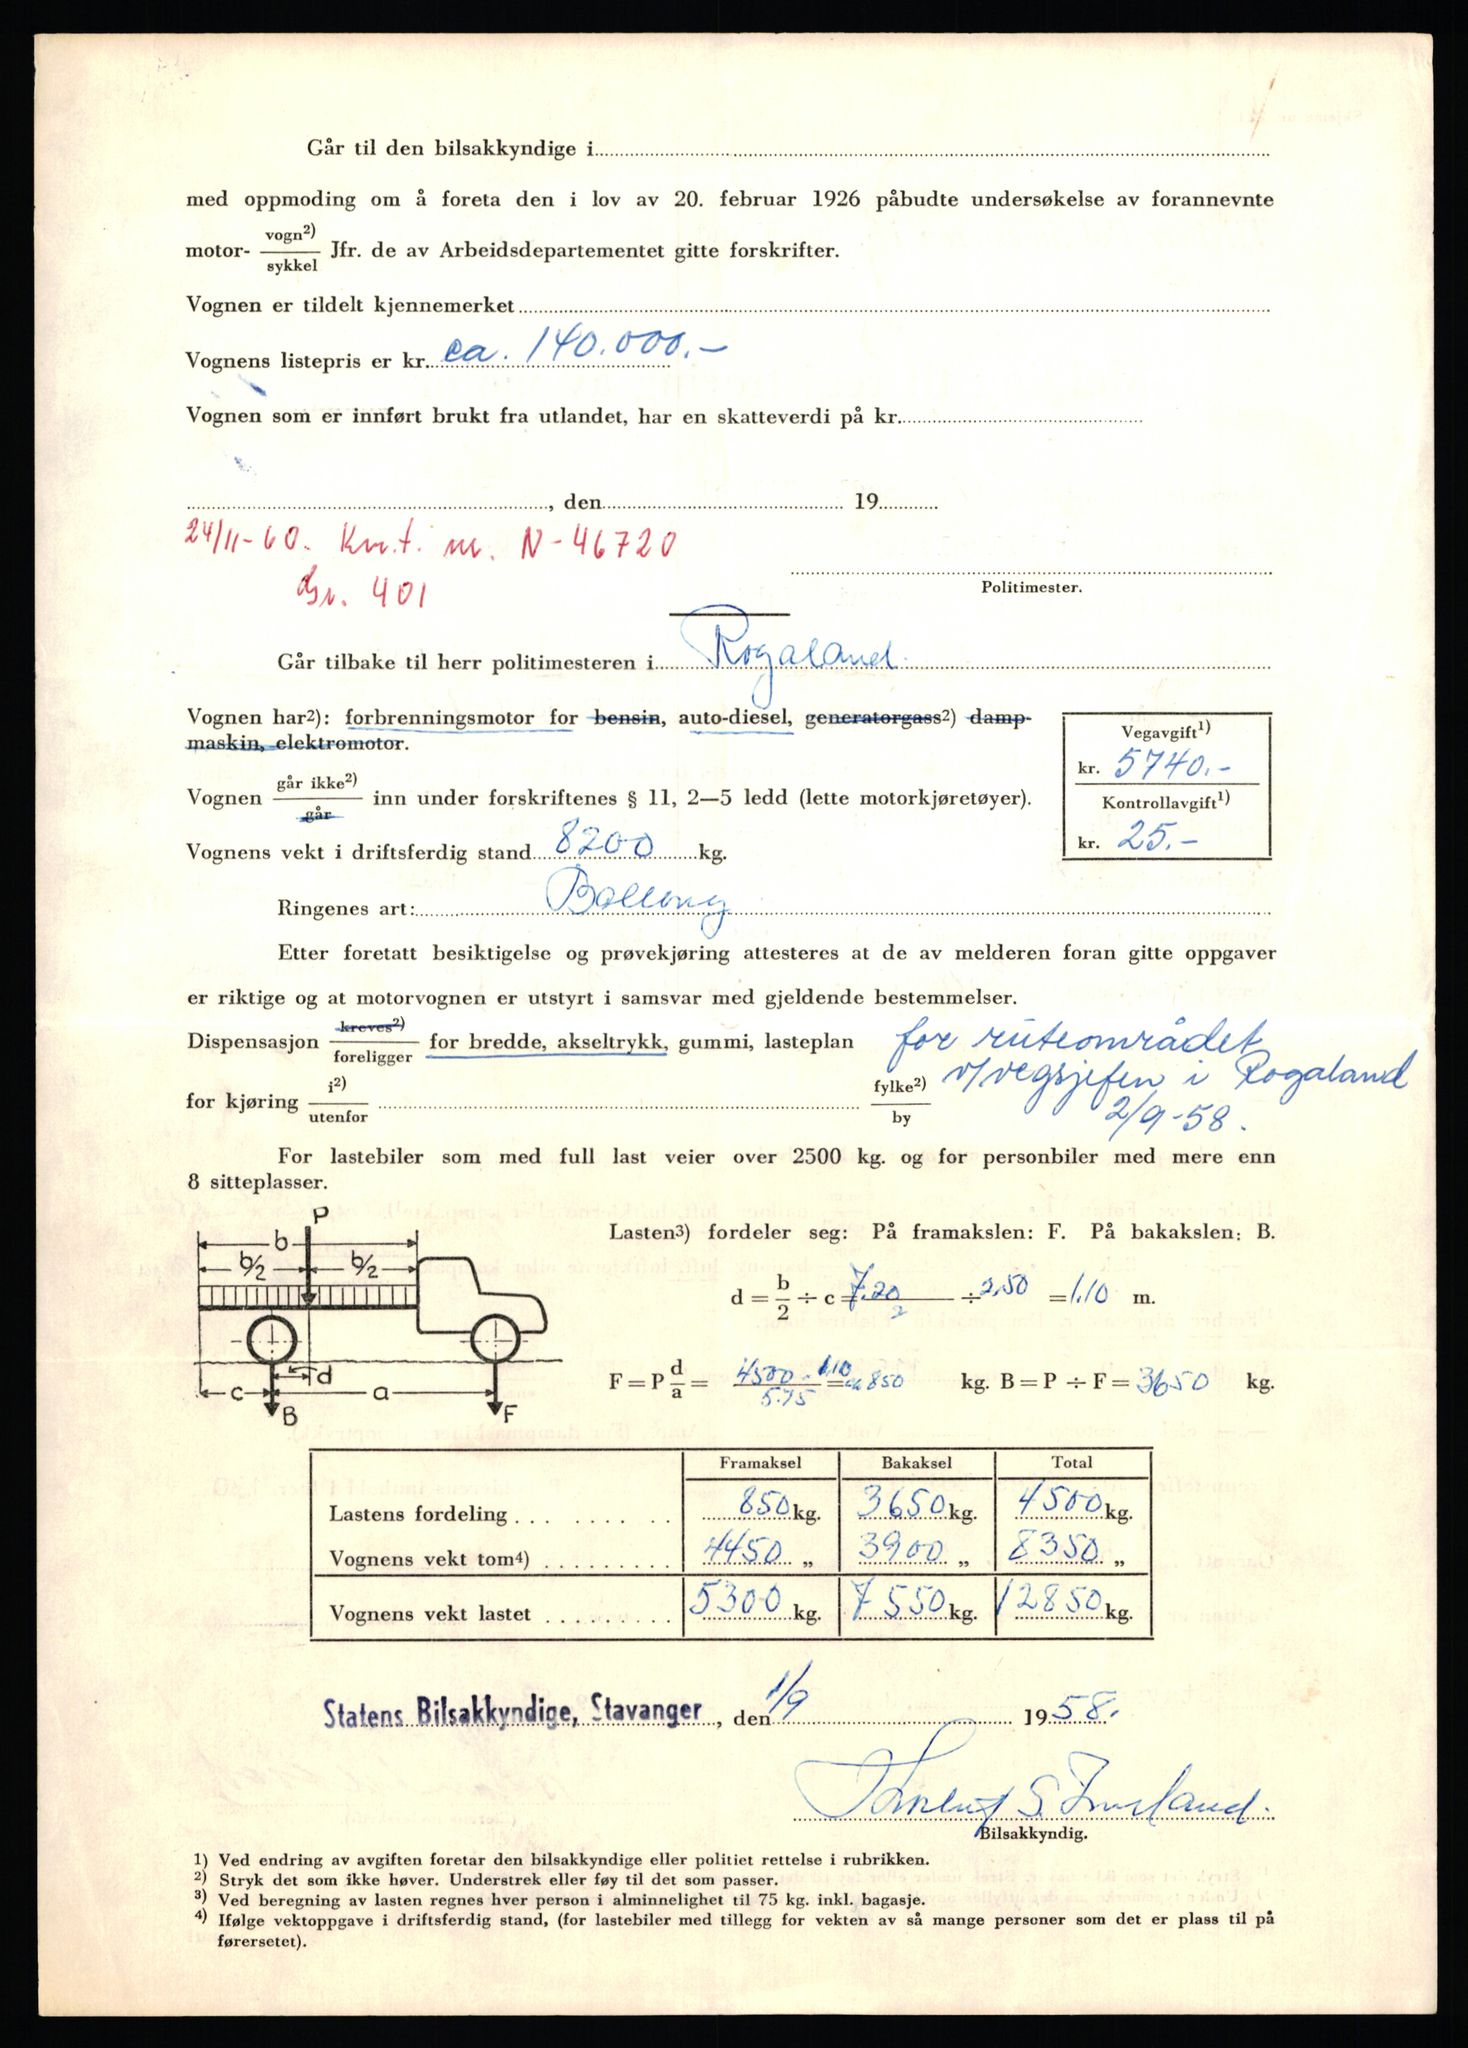 Går til den bilsakkyndige i
med oppmoding om å foreta den i lov av 20. februar 1926 påbudte undersøkelse av forannevnte
motor- vogn2) / sykkel Jfr. de av Arbeidsdepartementet gitte forskrifter.
Vognen er tildelt kjennemerket
Vognens listepris er kr. ca. 140.000.-
Vognen som er innført brukt fra utlandet, har en skatteverdi på kr.
, den 19
24/11-60. Km.t. nr. N-46720
Gr. 401
Politimester.
Går tilbake til herr politimesteren i Rogaland.
Vognen har2): forbrenningsmotor for bensin, auto-diesel, generatorgass2) damp-
maskin, elektromotor.
Vegavgift1)
kr. 5740.-
Kontrollavgift1)
kr. 25.-
Vognen går ikke2) / går inn under forskriftenes § 11, 2—5 ledd (lette motorkjøretøyer).
Vognens vekt i driftsferdig stand 8200 kg.
Ringenes art: Ballong
Etter foretatt besiktigelse og prøvekjøring attesteres at de av melderen foran gitte oppgaver
er riktige og at motorvognen er utstyrt i samsvar med gjeldende bestemmelser.
Dispensasjon kreves2) / foreligger for bredde, akseltrykk, gummi, lasteplan for ruteområdet
v/vegsjefen i Rogaland
2/9-58.
for kjøring i2) / utenfor fylke2) / by
For lastebiler som med full last veier over 2500 kg. og for personbiler med mere enn
8 sitteplasser.
P
b
b/2 b/2
d
c a
B F
Lasten3) fordeler seg: På framakslen: F. På bakakslen: B.
d = b/2 ÷ c = 7.20/2 ÷ 2,50 = 1.10 m.
F = P d/a = 4500 . 1,10 / 5.75 = ca 850 kg. B = P ÷ F = 3650 kg.
Framaksel Bakaksel Total
Lastens fordeling . . . . . . . . 850 kg. 3650 kg. 4500 kg.
Vognens vekt tom4) . . . . . . . . . 4450 „ 3900 „ 8350 „
Vognens vekt lastet . . . . . . . . . 5300 kg. 7550 kg. 12850 kg.
Statens Bilsakkyndige, Stavanger, den 1/9 1958.
Bilsakkyndig.
1) Ved endring av avgiften foretar den bilsakkyndige eller politiet rettelse i rubrikken.
2) Stryk det som ikke høver. Understrek eller føy til det som passer.
3) Ved beregning av lasten regnes hver person i alminnelighet til 75 kg. inkl. bagasje.
4) Ifølge vektoppgave i driftsferdig stand, (for lastebiler med tillegg for vekten av så mange personer som det er plass til på
førersetet).